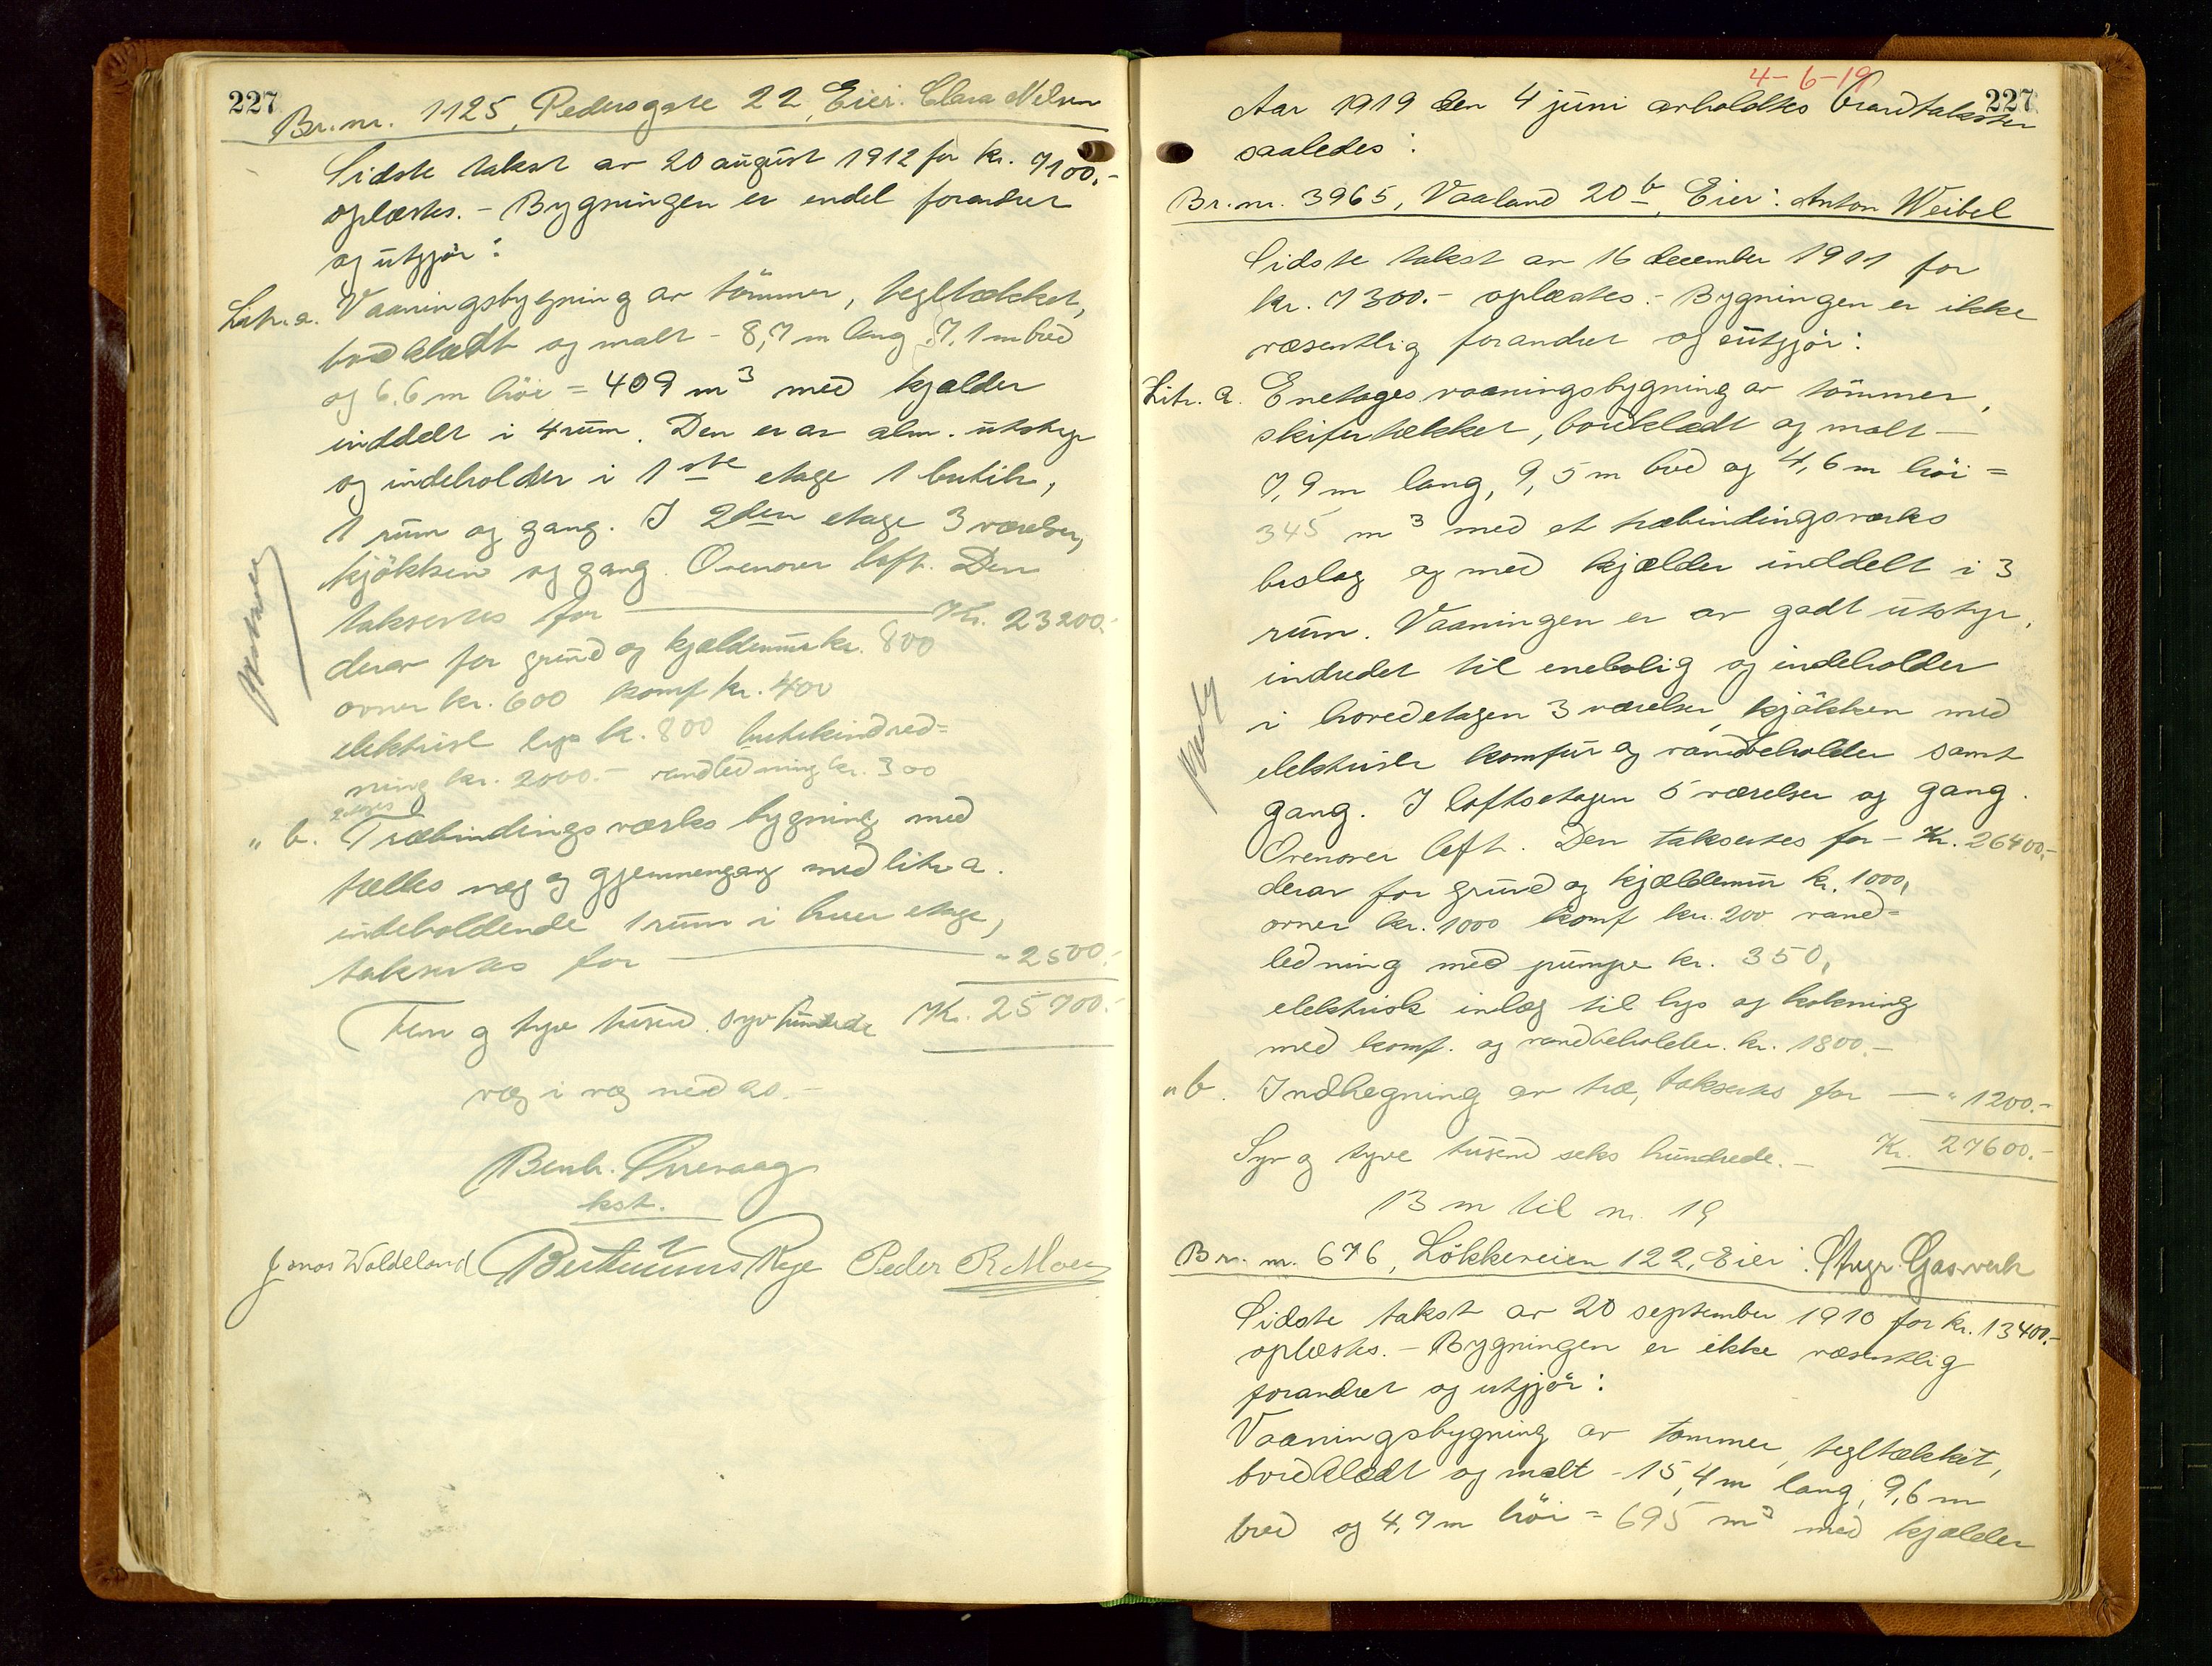 227
Br.nr. 1125, Pedersgate 22, Eier: Clara Nilsen
Sidste takst av 20 august 1912 for kr. 7100.-
oplæstes. - Bygningen er endel forandret
og utgjør:
Litr. a. Vaaningsbygning av tömmer, tegltækket,
bordklædt og malt - 8,7 m lang 7,1 m bred
og 6,6 m höi = 409 m3 med kjælder
inddelt i 4 rum. Den er av alm. utstyr
og indeholder i 1ste etage 1 butik,
1 rum og gang. I 2den etage 3 værelser,
kjökken og gang. Ovenover loft. Den
takseres for Kr. 23200.-
derav for grund og kjældermur kr. 800
ovner kr. 600 komf kr. 400
elektrisk lys kr. 800 butikindred=
ning kr. 2000.- vandledning kr. 300
2 etages
" b. Træbindingsværks bygning med
fælles væg og gjennemgang med litr a.
indeholdende 1 rum i hver etage,
takseres for " 2500.-
Fem og tyve tusend syv hundrede Kr. 25700.-
væg i væg med 20.-
Bernh. Øirevaag
kst.
Jonas Waldeland Berthinius Rege Peder R Moen
4-6-19
227
Aar 1919 den 4 juni avholdtes brandtakster
saaledes:
Br.nr. 3965, Vaaland 20b, Eier: Anton Weibel
Sidste takst av 16 december 1911 for
kr. 7300.- oplæstes.- Bygningen er ikke
væsentlig forandret og utgjør:
Litr. a. Enetages vaaningsbygning av tömmer,
skifertækket, bordklædt og malt -
7,9 m lang, 9,5 m bred og 4,6 m höi =
345 m3 med et træbindingsværks
bislag og med kjælder inddelt i 3
rum. Vaaningen er av godt utstyr,
indredet til enebolig og indeholder
i hovedetagen 3 værelser, kjökken med
elektrisk komfur og vandbeholder samt
gang. I loftsetagen 5 værelser og gang.
Ovenover loft. Den takseres for - Kr. 26400.-
derav for grund og kjældermur kr. 1000,
ovner kr. 1000 komf kr. 200 vand=
ledning med pumpe kr. 350,
elektrisk indlæg til lys og kokning
med komf. og vandbeholder kr. 1800.-
" b. Indhegning av træ, takseres for - " 1200.-
Syv og tyve tusend seks hundrede.- Kr. 27600.-
13 m til nr. 19
Br. nr. 676, Lökkeveien 122, Eier: Stvgr. Gasverk
Sidste takst av 20 september 1910 for kr. 13400.-
oplæstes. - Bygningen er ikke væsentlig
forandret og utgjör:
Vaaningsbygning av tömmer, tegltækket,
bordklædt og malt - 15,4 m lang, 9,6 m
bred og 4,7 m höi = 695 m3 med kjælder